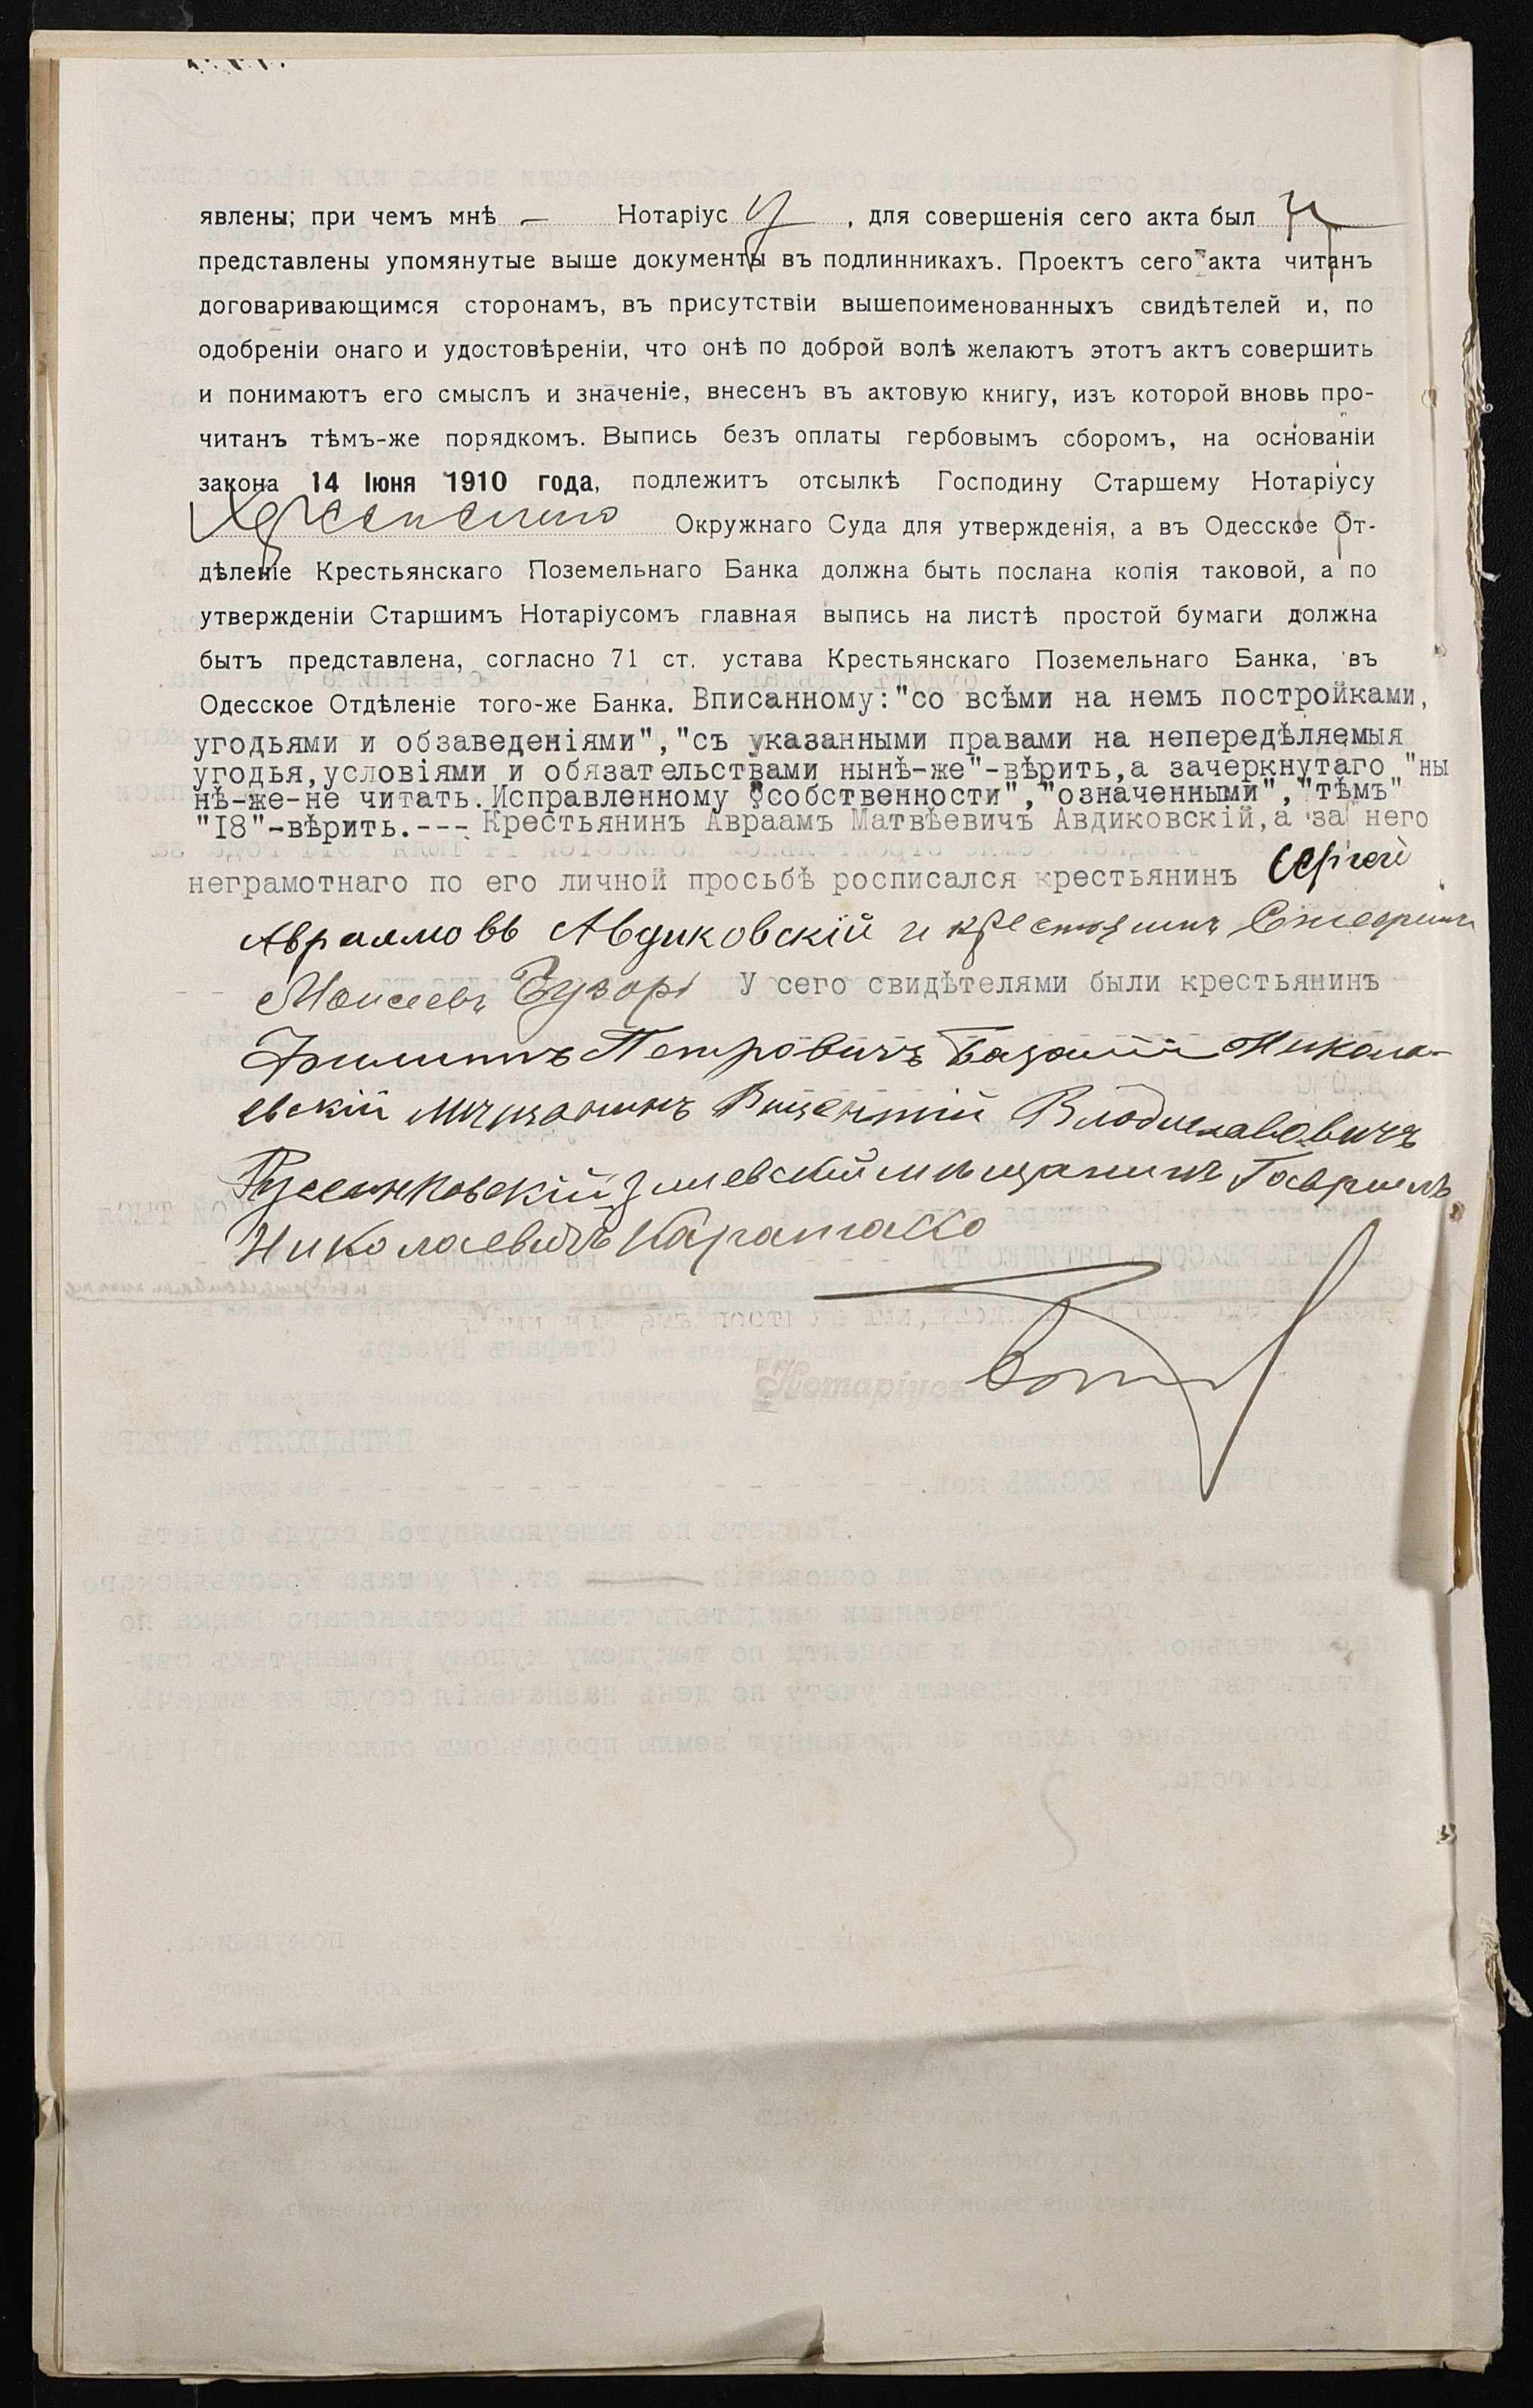 явлены; при чемъ мнѣ — Нотаріус у, для совершенія сего акта был и
представлены упомянутые выше документы въ подлинникахъ. Проектъ сего акта читанъ
договаривающимся сторонамъ, въ присутствіи вышепоименованныхъ свидѣтелей и, по
одобреніи онаго и удостовѣреніи, что онѣ по доброй волѣ желаютъ этотъ актъ совершить
и понимаютъ его смыслъ и значеніе, внесенъ въ актовую книгу, изъ которой вновь про-
читанъ тѣмъ-же порядкомъ. Выпись безъ оплаты гербовымъ сборомъ, на основаніи
закона 14 Іюня 1910 года, подлежитъ отсылкѣ Господину Старшему Нотаріусу
Херсонскаго Окружнаго Суда для утвержденія, а въ Одесское От-
дѣленіе Крестьянскаго Поземельнаго Банка должна быть послана копія таковой, а по
утвержденіи Старшимъ Нотаріусомъ главная выпись на листѣ простой бумаги должна
быть представлена, согласно 71 ст. устава Крестьянскаго Поземельнаго Банка, въ
Одесское Отдѣленіе того-же Банка. Вписанному:"со всѣми на немъ постройками,
угодьями и обзаведеніями","съ указанными правами на непередѣляемыя
угодья,условіями и обязательствами нынѣ-же"-вѣрить,а зачеркнутаго "ны
нѣ-же-не читать.Исправленному "собственности","означенными","тѣмъ"
"I8"-вѣрить.--- Крестьянинъ Авраамъ Матвѣевичъ Авдиковскій,а за него
неграмотнаго по его личной просьбѣ росписался крестьянинъ Сергей
Авраамовъ Авдиковскій и крестьянинъ
Моисеевъ У сего свидѣтелями были крестьянинъ
Филиппъ Петровичъ Никола-
евскій мѣщанинъ Викентій Владиславовичъ
мѣщанинъ Гавріилъ
Николаевичъ
Нотаріусъ